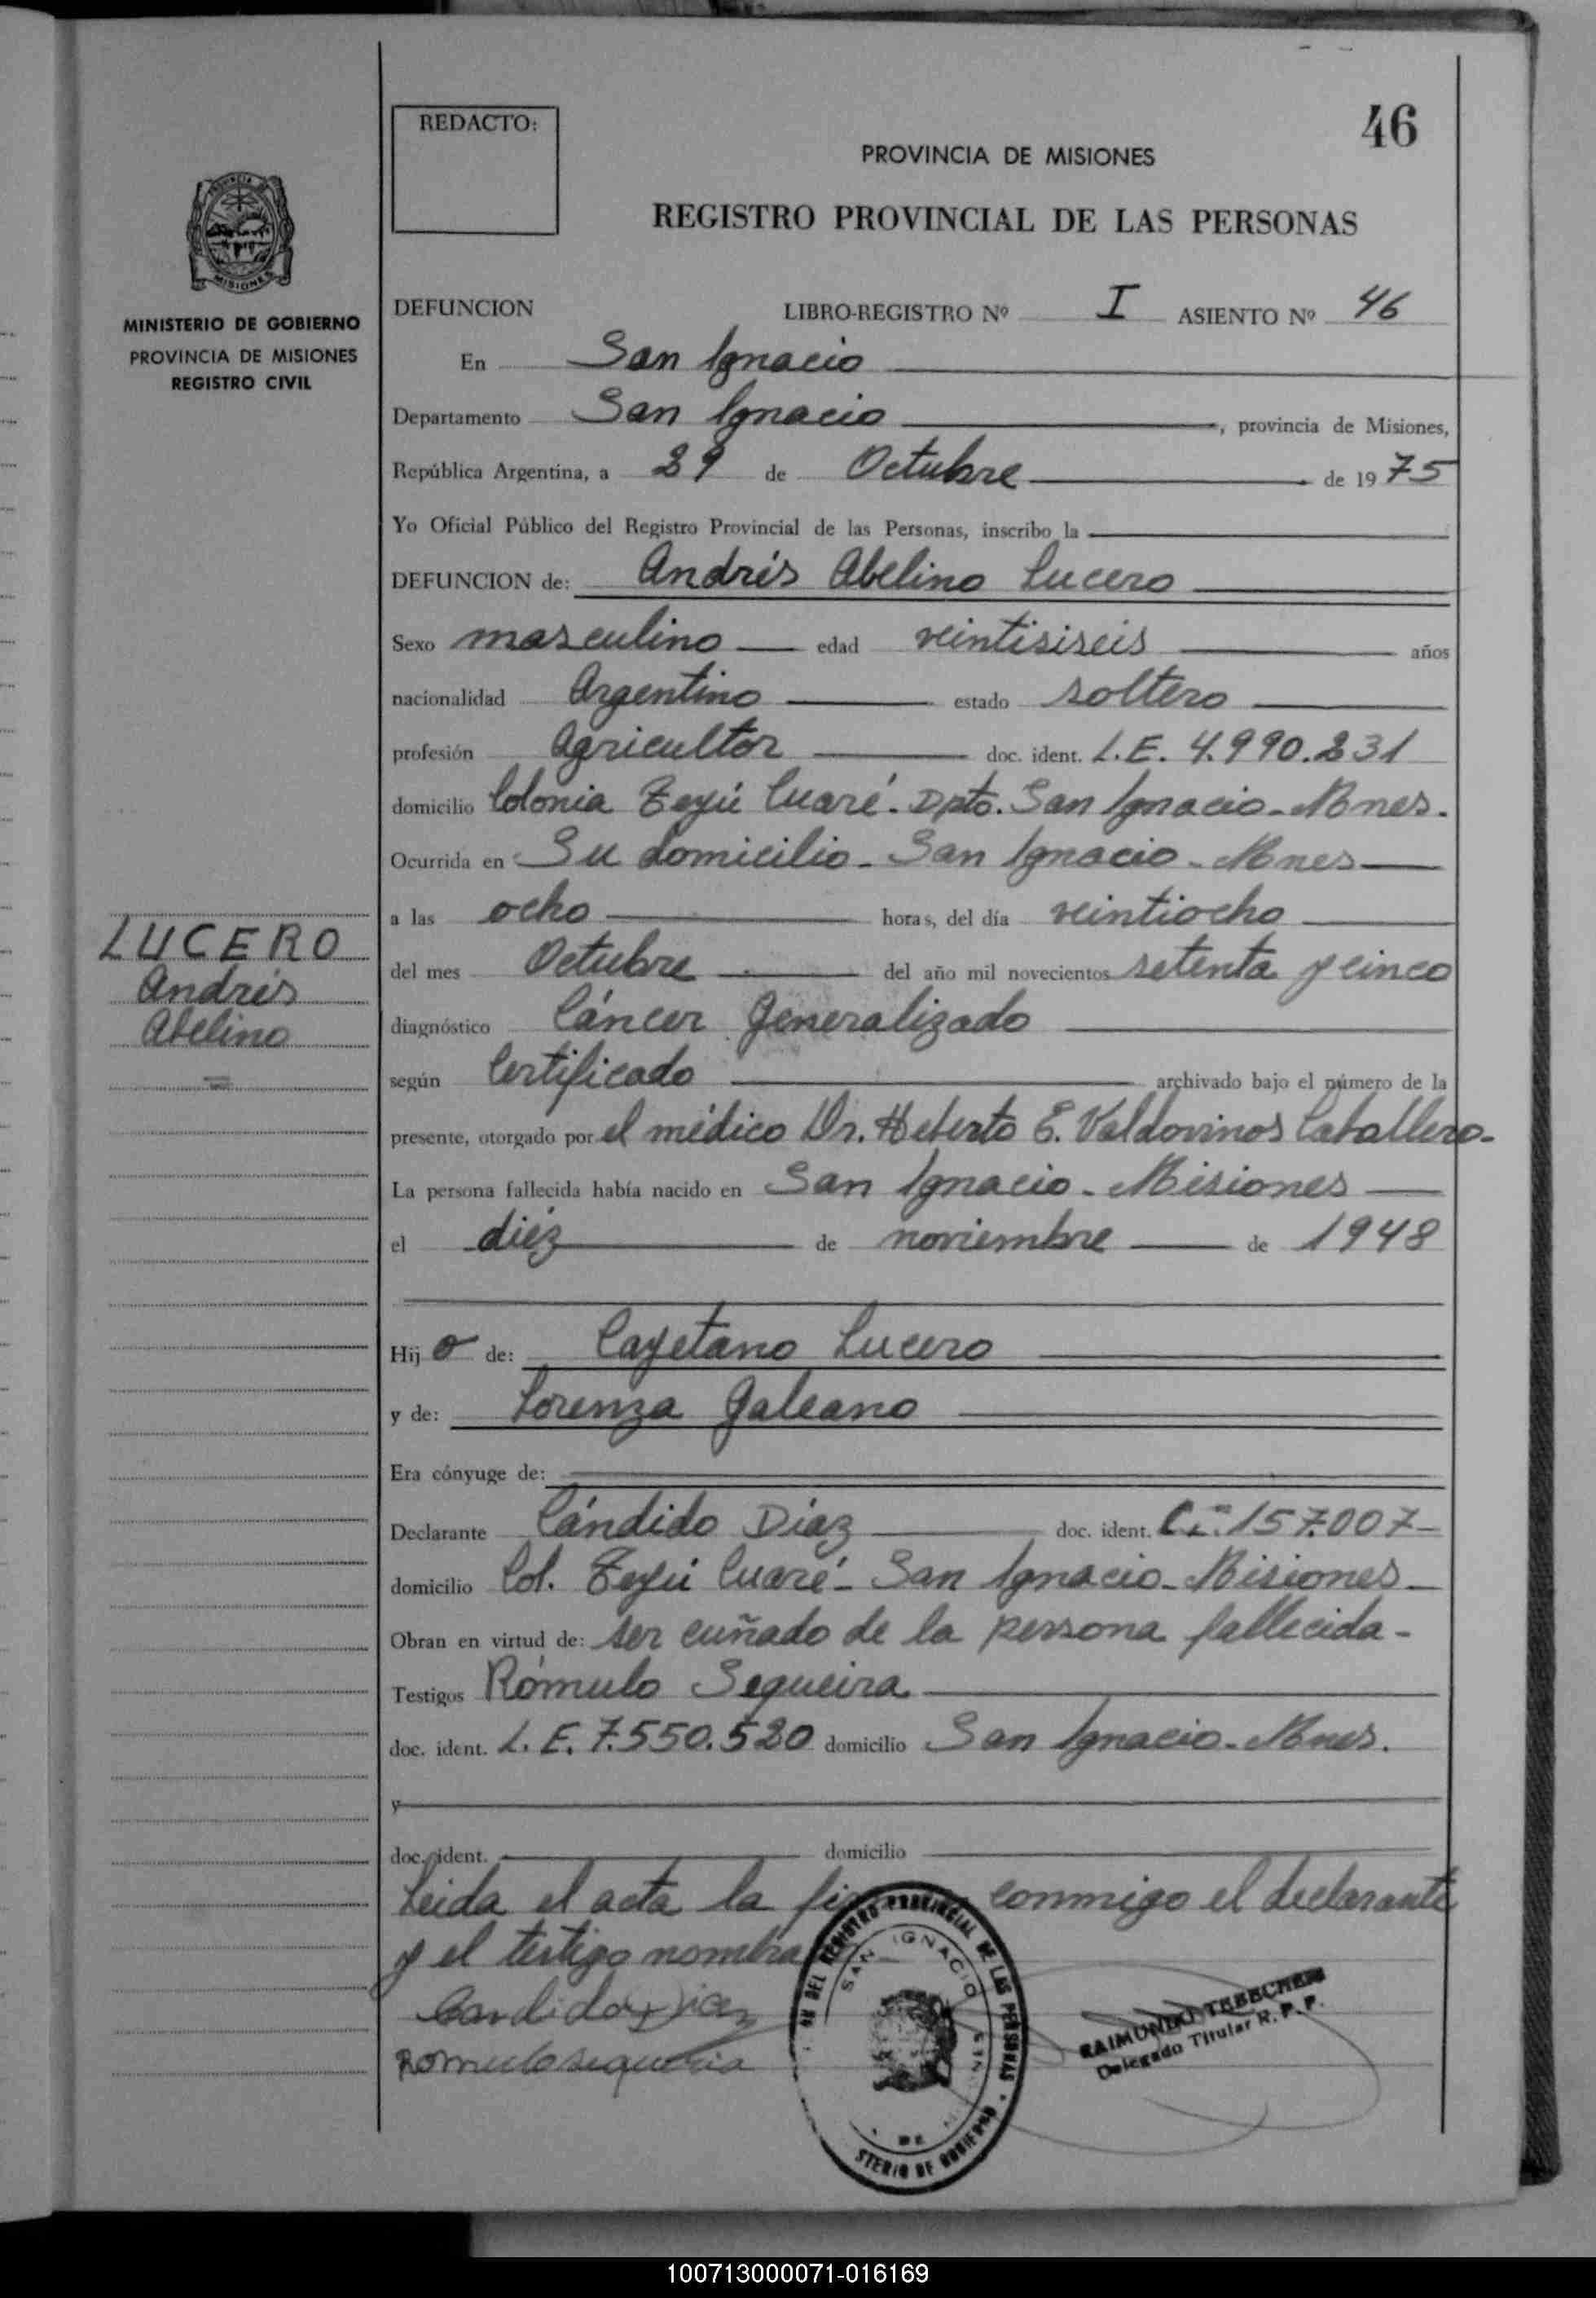 46
REDACTO:
PROVINCIA DE MISIONES
REGISTRO PROVINCIAL DE LAS PERSONAS
MISIONES
MINISTERIO DE GOBIERNO
PROVINCIA DE MISIONES
REGISTRO CIVIL
DEFUNCION LIBRO-REGISTRO Nº I ASIENTO Nº 46
En San Ignacio
Departamento San Ignacio, provincia de Misiones,
República Argentina, a 29 de Octubre de 1975
Yo Oficial Público del Registro Provincial de las Personas, inscribo la
DEFUNCION de: Andrés Abelino Lucero
Sexo masculino edad veintisiseis años
nacionalidad Argentino estado soltero
profesión Agricultor doc. ident. L.E. 4.990.231
domicilio Colonia Teyú Cuaré. Dpto. San Ignacio-Mnes.
Ocurrida en Su domicilio - San Ignacio - Mnes
a las ocho horas, del día veintiocho
del mes Octubre del año mil novecientos setenta y cinco
diagnóstico Cáncer Generalizado
según Certificado archivado bajo el número de la
presente, otorgado por el médico Dr. Heberto E. Valdovinos Caballero.
La persona fallecida había nacido en San Ignacio - Misiones
el diéz de noviembre de 1948
LUCERO
Andrés
Abelino
Hijo de: Cayetano Lucero
y de: Lorenza Galeano
Era cónyuge de:
Declarante Cándido Díaz doc. ident. C.I. 157.007-
domicilio Col. Teyú Cuaré - San Ignacio - Misiones
Obran en virtud de: ser cuñado de la persona fallecida -
Testigos Rómulo Sequeira
doc. ident. L.E. 7.550.520 domicilio San Ignacio - Mnes.
y
doc. ident. domicilio
Leida el acta la conmigo el declarante
y el testigo
Candido Diaz
Romulo sequeira
SAN IGNACIO
RAIMUNDO
Delegado Titular R. P. P.
100713000071-016169